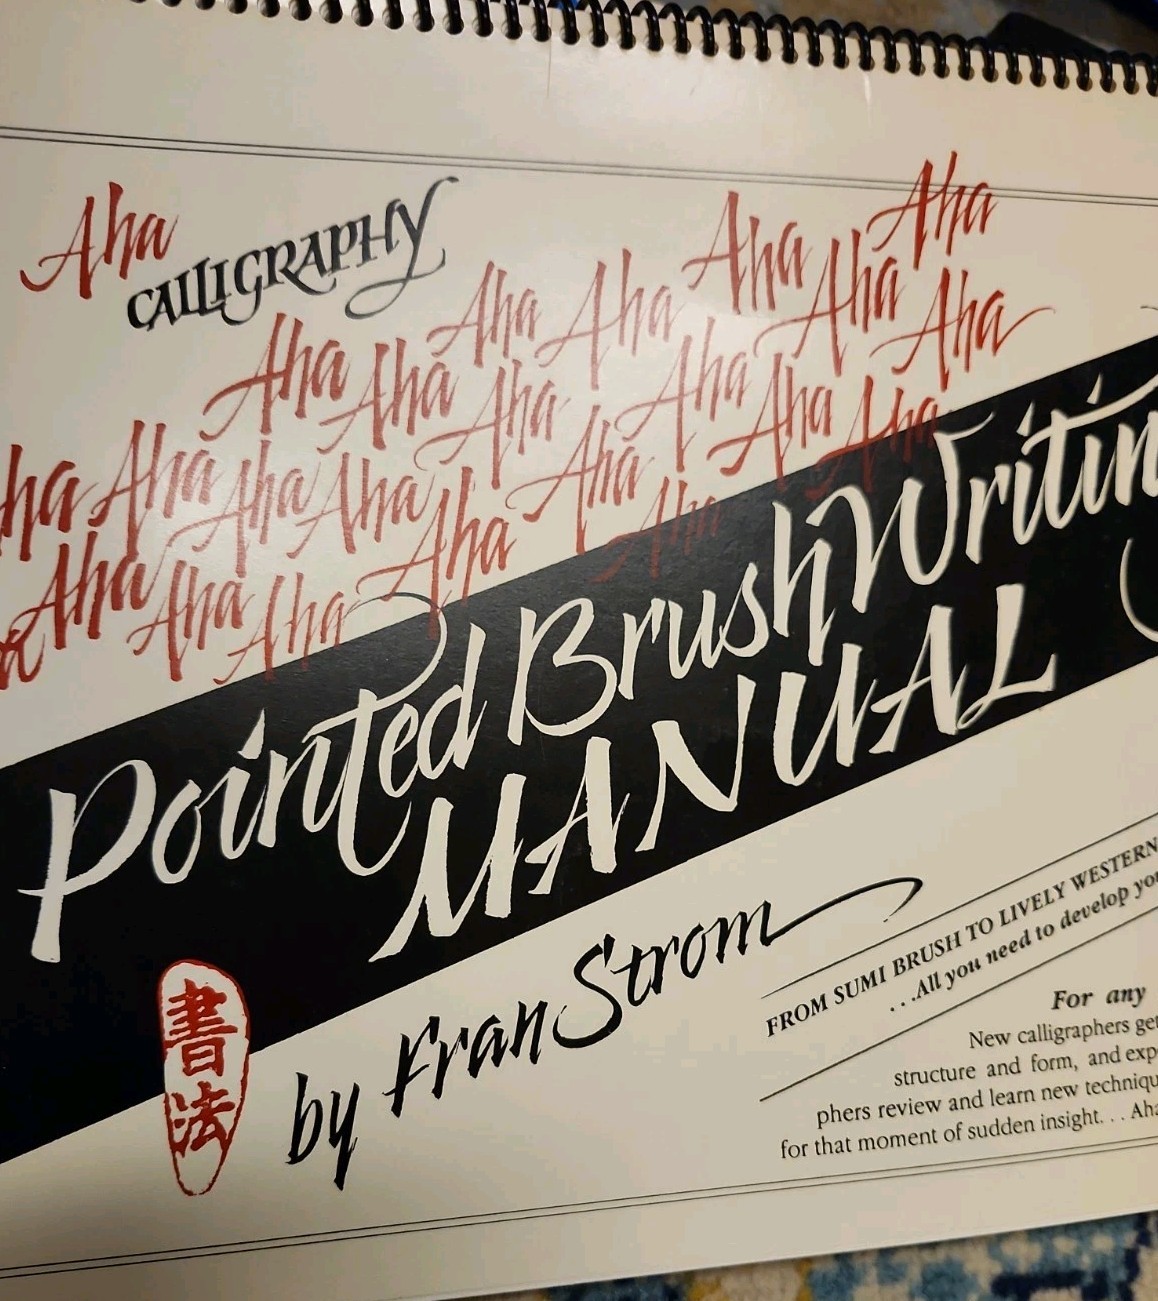 Aha
CALLIGRAPHY
Aha
Aha Aha
Aha Aha Aha Aha
Aha Aha Aha Aha Aha
Aha Aha Aha Aha Aha Aha
Aha Aha Aha Aha Aha
Aha Aha Aha
Pointed Brush Writin
MANUAL
by Fran Strom
書法
FROM SUMI BRUSH TO LIVELY WESTERN
...All you need to develop you
For any
New calligraphers get
structure and form, and exp
phers review and learn new techniqu
for that moment of sudden insight... Aha